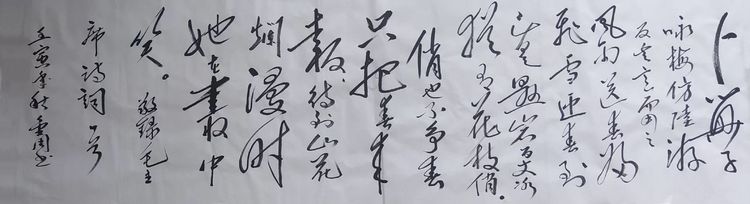 卜算子
咏梅仿陸游
反其意而用之
风雨送春归
飞雪迎春到
已是悬岩百丈冰
犹有花枝俏。
俏也不争春
只把春来
報，待到山花
烂漫时
她在叢中
笑。敬録毛主
席诗词一首
壬寅季秋